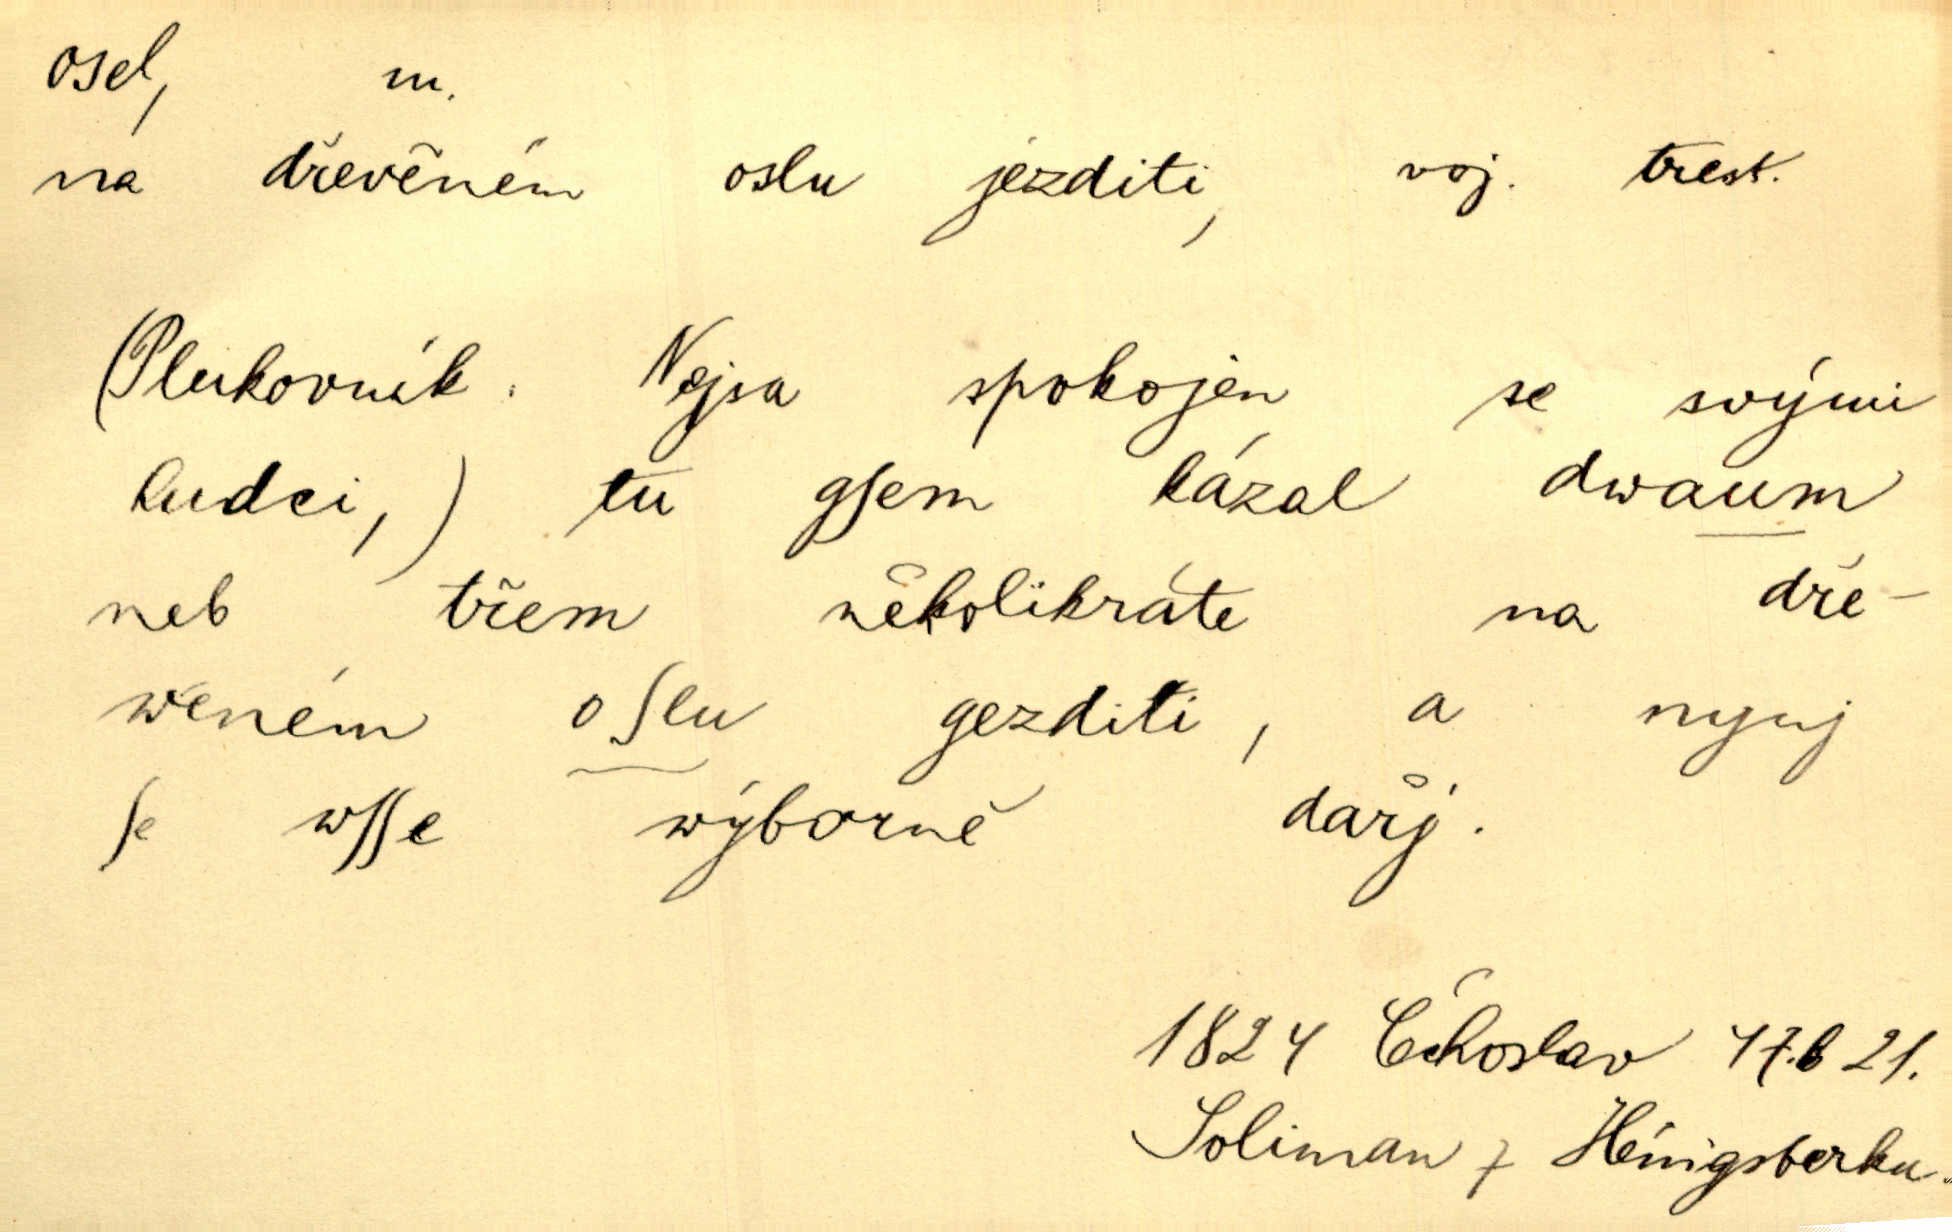 osel, m.
na dřevěném oslu jezditi, voj. trest.
(Plukovník. Nejsa spokojen se svými
hudci,) tu gſem kázal dwaum
neb třem několikráte na dře-
wěném oſlu gezditi, a nynj
ſe wſſe wýborně dařj.
1824 Čechoslav 47.b 21.
Soliman z Hénigsberku